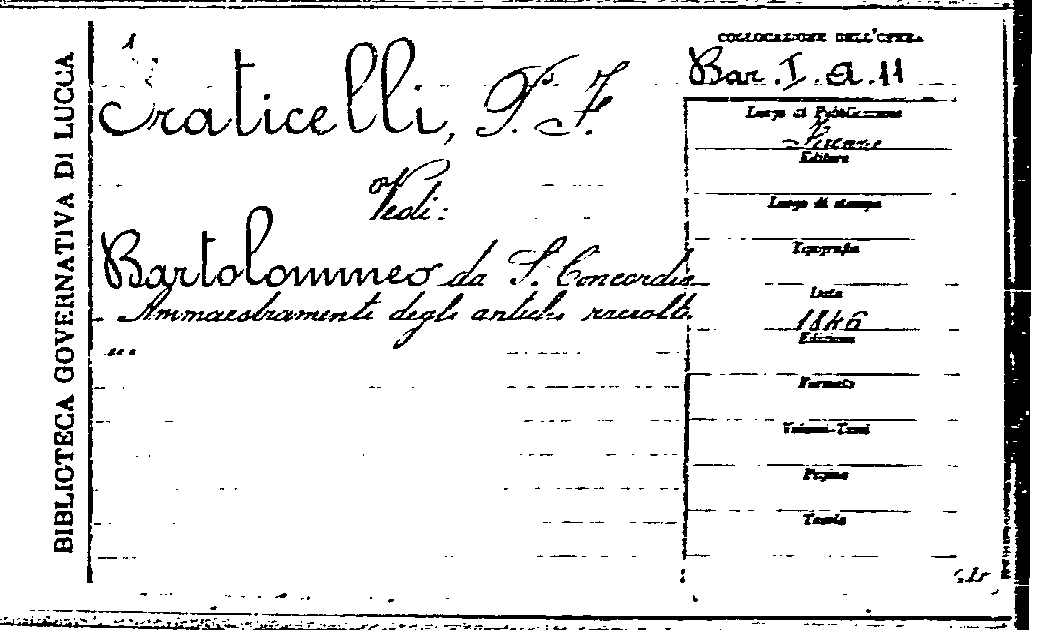 BIBLIOTECA GOVERNATIVA DI LUCCA
1
Fraticelli, P. F.
Vedi:
Bartolommeo da S. Concordio
Ammaestramenti degli antichi raccolti
...
COLLOCAZIONE DELL'OPERA
Bar. I. a. 11
Luogo di Pubblicazione
Firenze
Editore
Luogo di stampa
Tipografia
Data
1846
Edizione
Formato
Volumi-Tomi
Pagine
Tavole